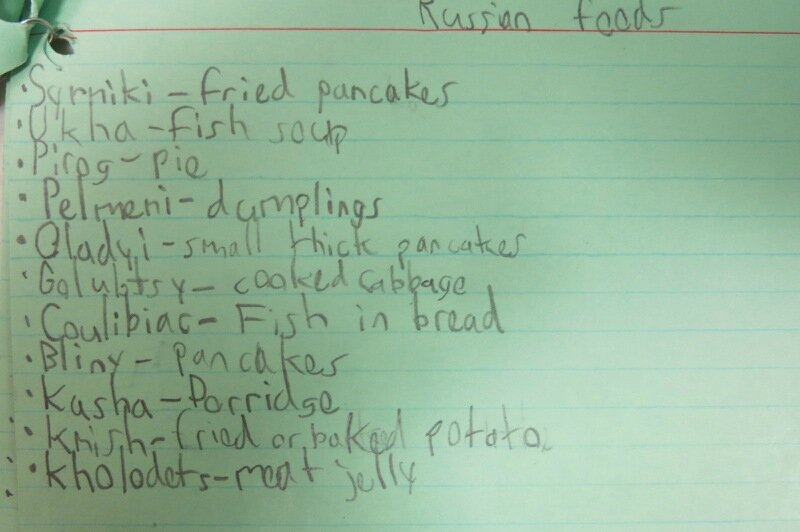 Russian foods
· Syrniki - fried pancakes
· Ukha - fish soup
· Pirog - pie
· Pelmeni - dumplings
· Oladyi - small thick pancakes
· Golubtsy - cooked cabbage
· Coulibiac - Fish in bread
· Bliny - pancakes
· Kasha - Porridge
· Knish - fried or baked potato
· kholodets - meat jelly